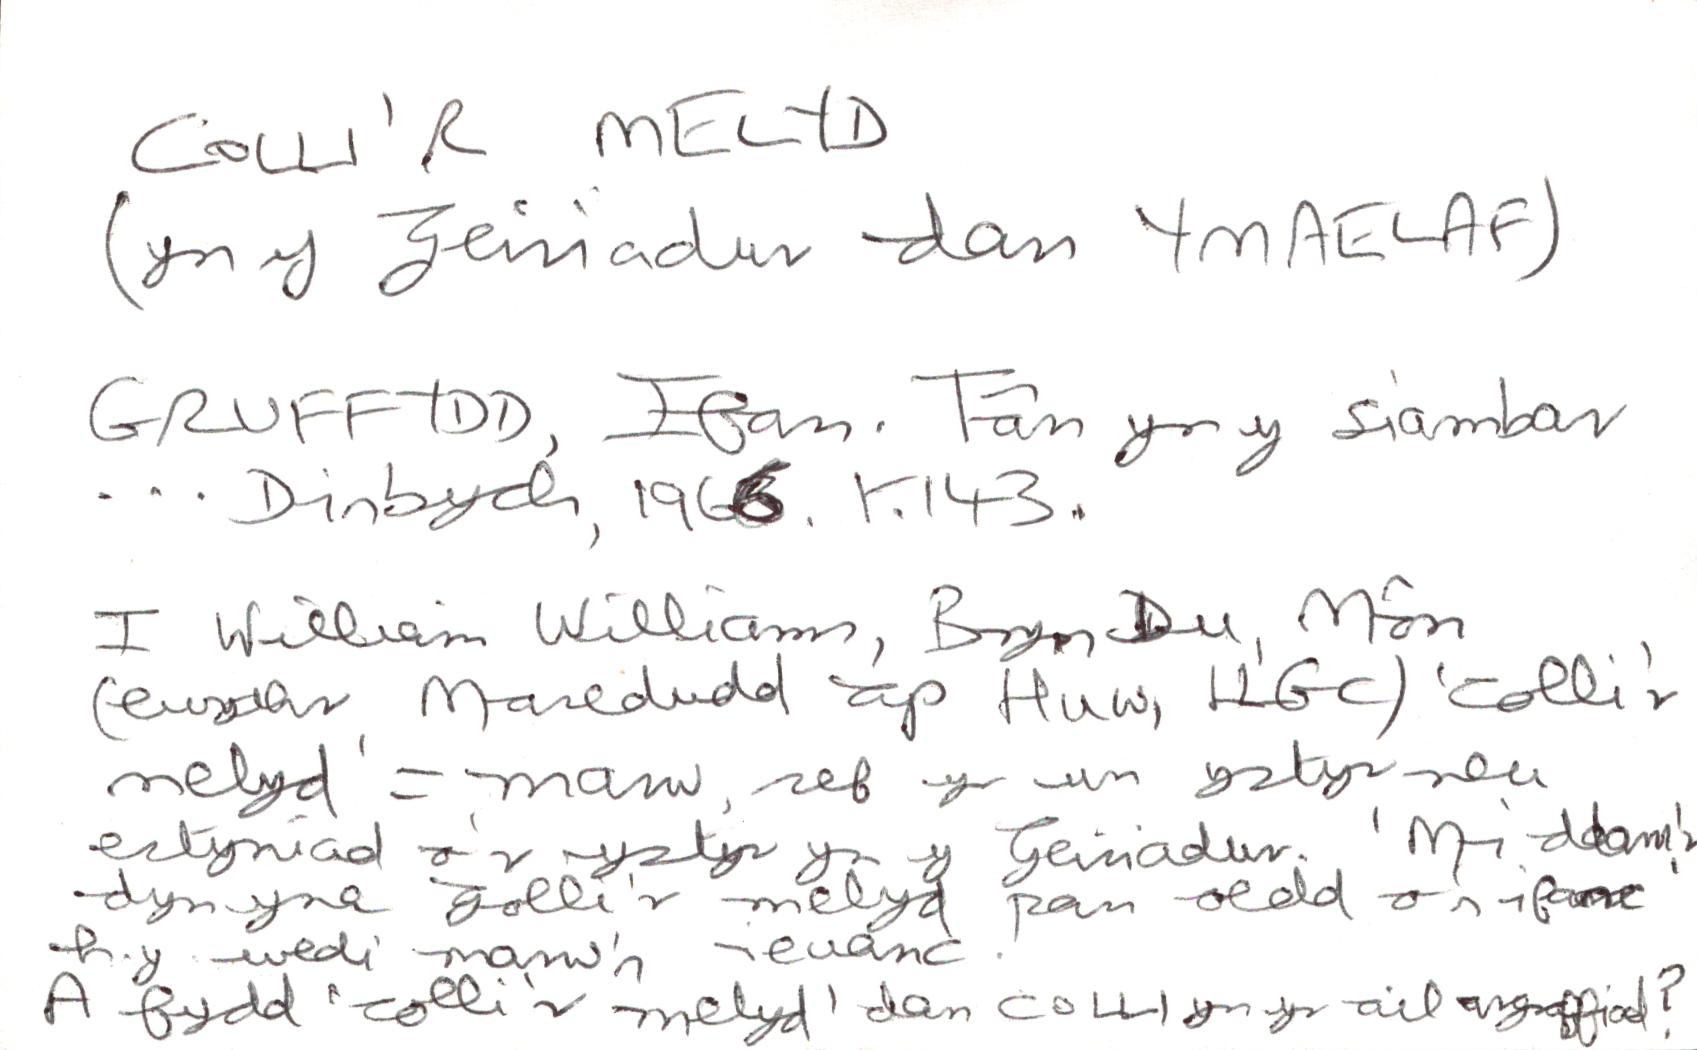 COLLI'R MELYD
(yn y Geiriadur dan YMAELAF)
GRUFFYDD, Ifan. Tân yn y siambar
... Dinbych, 1966. t.143.
I William Williams, Bryn Du, Môn
(ewythr Maredudd ap Huw, LlGC) 'colli'r
melyd' = marw, sef yr un ystyr neu
estyniad o'r ystyr yn y Geiriadur. 'Mi ddaru'r
dyn yna golli'r melyd pan oedd o'n ifanc'
h.y. wedi marw'n ieuanc.
A fydd 'colli'r melyd' dan COLLI yn yr ail argraffiad?